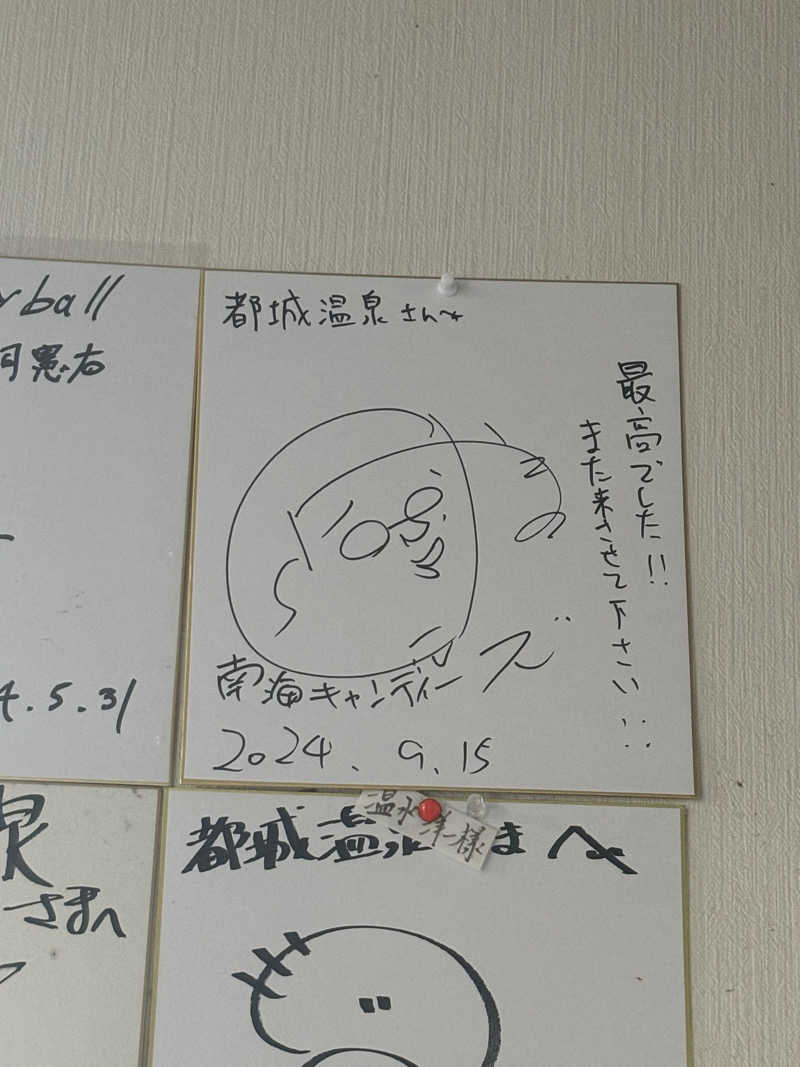 ball
憲右
4.5.31
都城温泉さんへ
最高でした!!
また来させて下さい!!
南海キャンディーズ
2024.9.15
泉
さまへ
温水洋一様
都城温泉さまへ